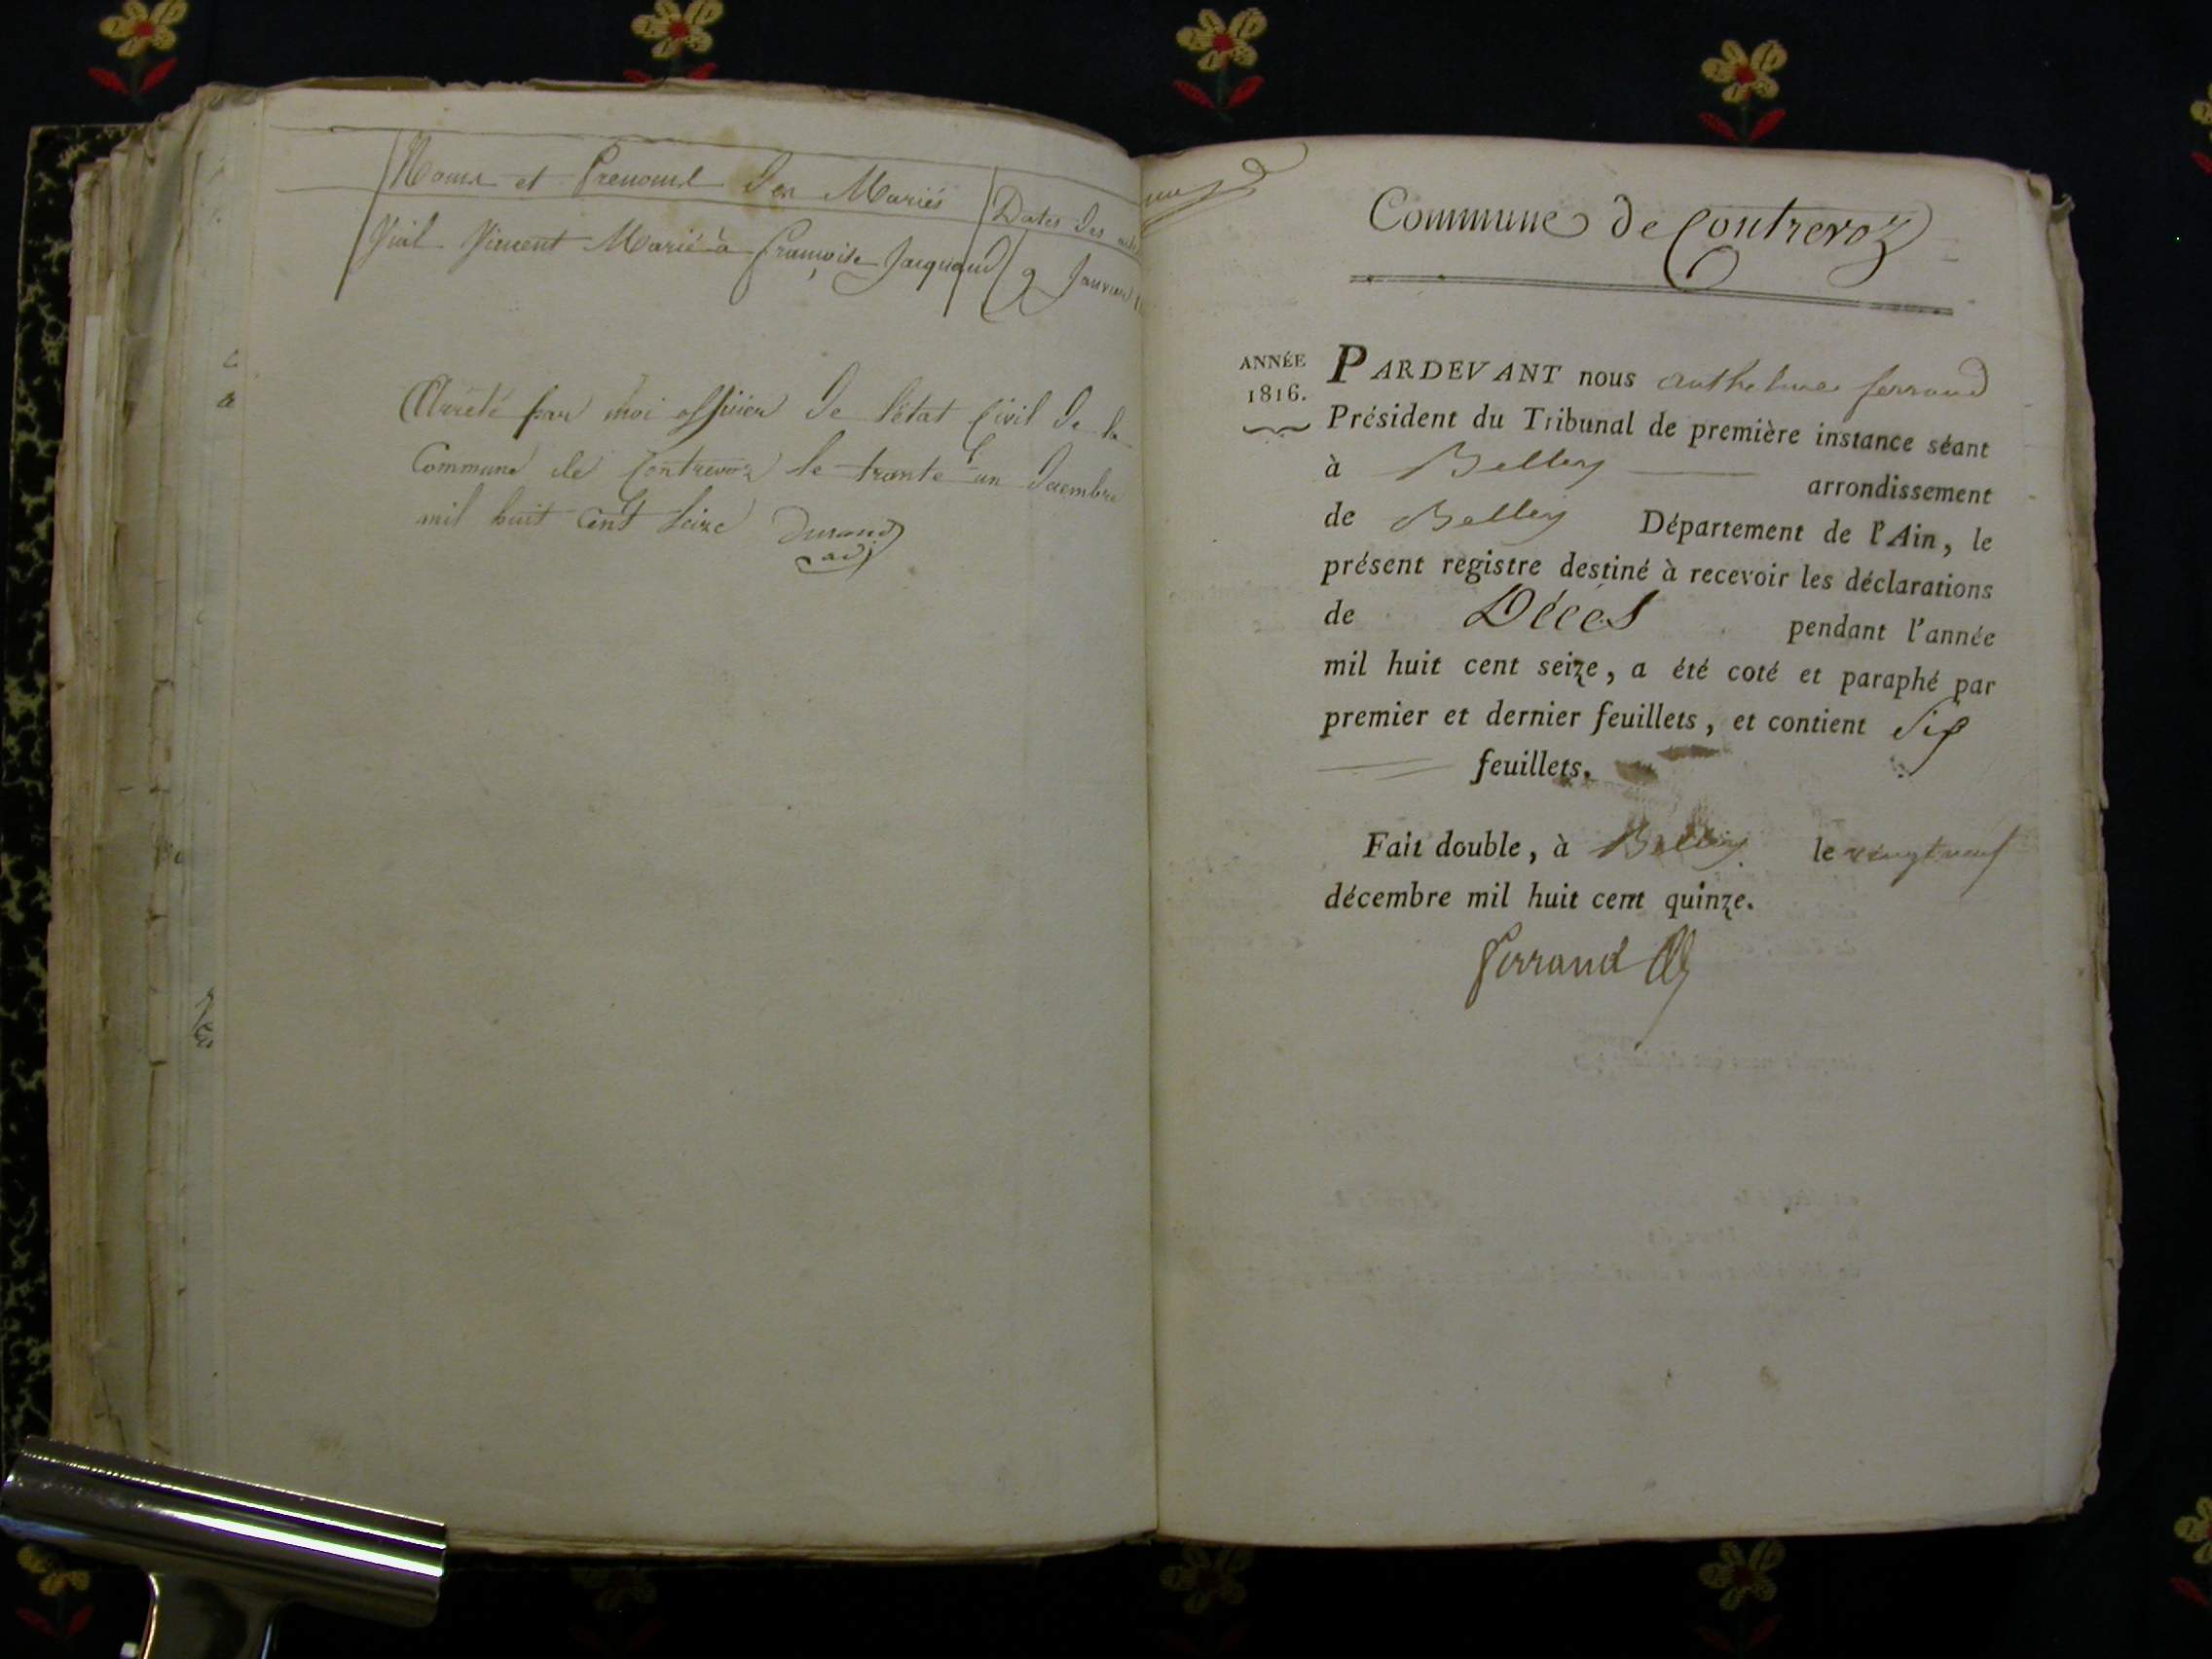 Noms et Prenoms des Mariés
Dates des
Vial Vincent Marié à Françoise Jacquand
9 Janvier
Arrêté par moi officier de l'état Civil de la
Commune de Contrevoz le trante un decembre
mil huit Cent Seize Durand
adj
Commune de Contrevoz
ANNÉE
1816.
PARDEVANT nous anthelme ferrand
Président du Tribunal de première instance séant
à Belley arrondissement
de Belley Département de l'Ain, le
présent registre destiné à recevoir les déclarations
de Décés pendant l'année
mil huit cent seize, a été coté et paraphé par
premier et dernier feuillets, et contient Six
feuillets.
Fait double, à Belley le vingt neuf
décembre mil huit cent quinze.
ferrand